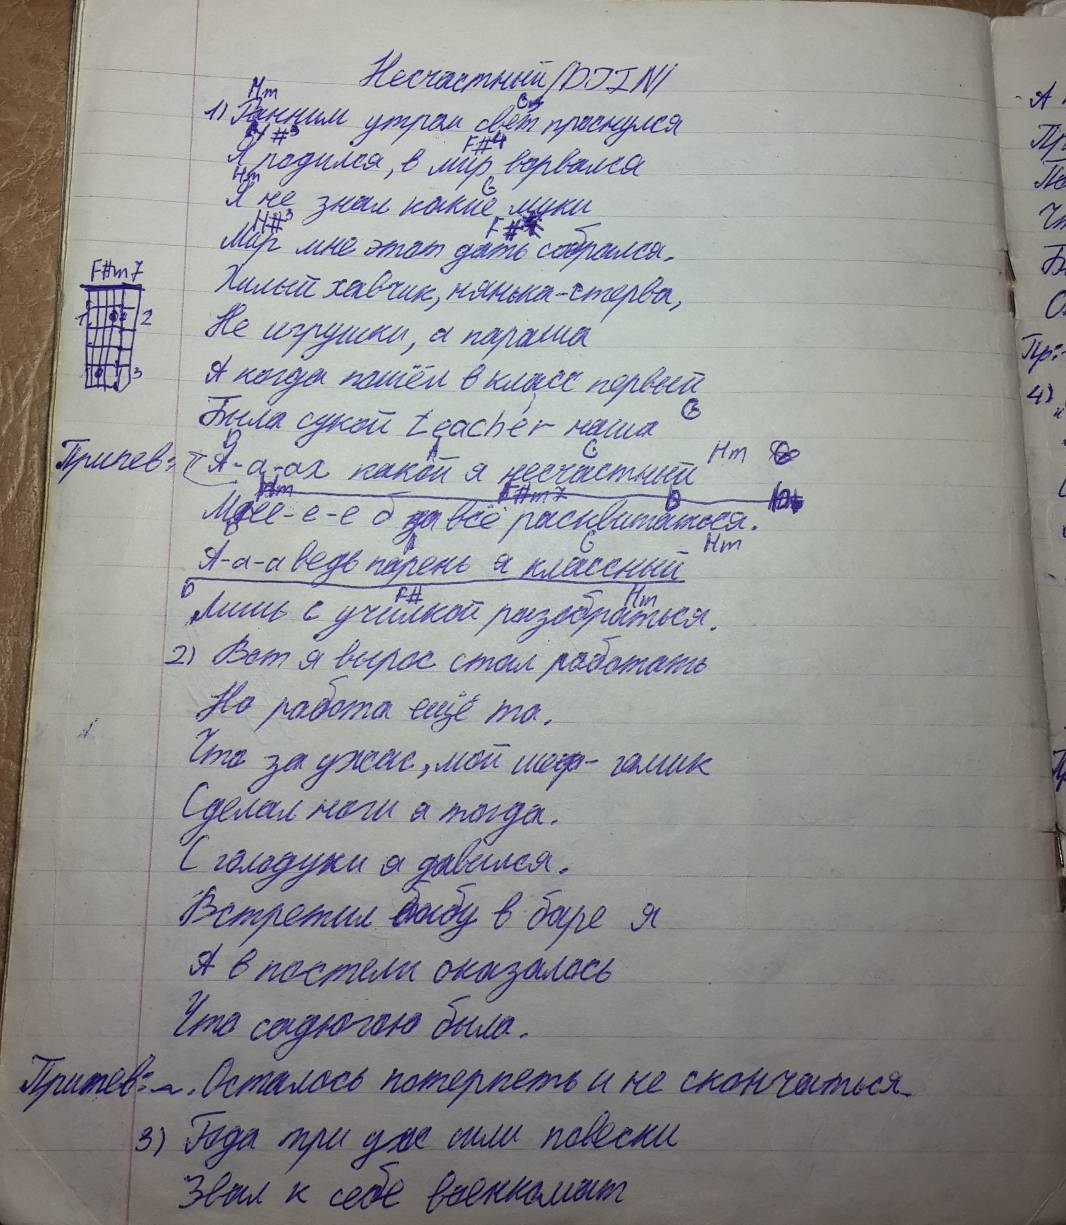 Несчастный /DJIN/
Hm G
1) Ранним утром свет проснулся
F#4
Я родился, в мир ворвался
Hm G
Я не знал какие муки
H#3 F#
Мир мне этот дать собрался.
Хилый хавчик, нянька-стерва,
F#m7
1 2
3
Не игрушки, а параша
А когда пошёл в класс первый
Была сукой teacher наша
D A G Hm
Припев: А-а-ах какой я несчастный
Hm F#m7 D
Мне-е-е б за всё расквитаться.
A G Hm
А-а-а ведь парень я классный
D F# Hm
Лишь с училкой разобраться.
2) Вот я вырос стал работать
Но работа ещё та.
Что за ужас, мой шеф-гомик
Сделал ноги я тогда.
С голодухи я давился.
Встретил бабу в баре я
А в постели оказалось
Что садюгою была.
Припев: ~. Осталось потерпеть и не скончаться
3) Года три уж слали повестки
Звал к себе военкомат
А
Пр
По
Чт
Б
О
Пр:
4)